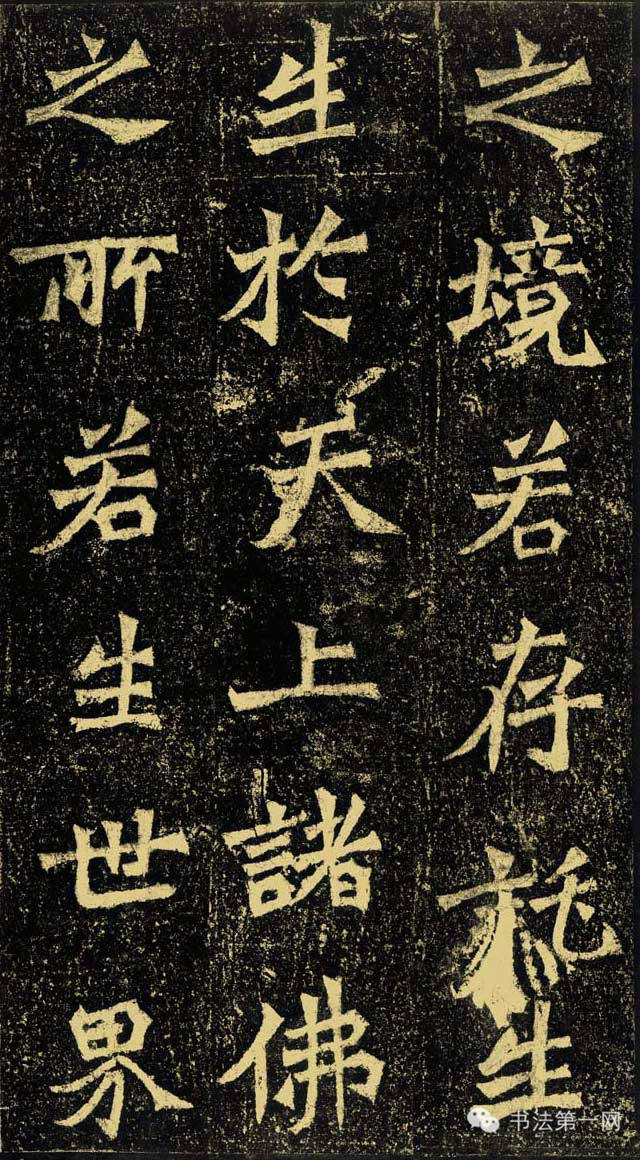 之境若存托生
生於天上諸佛
之所若生世界
书法第一网